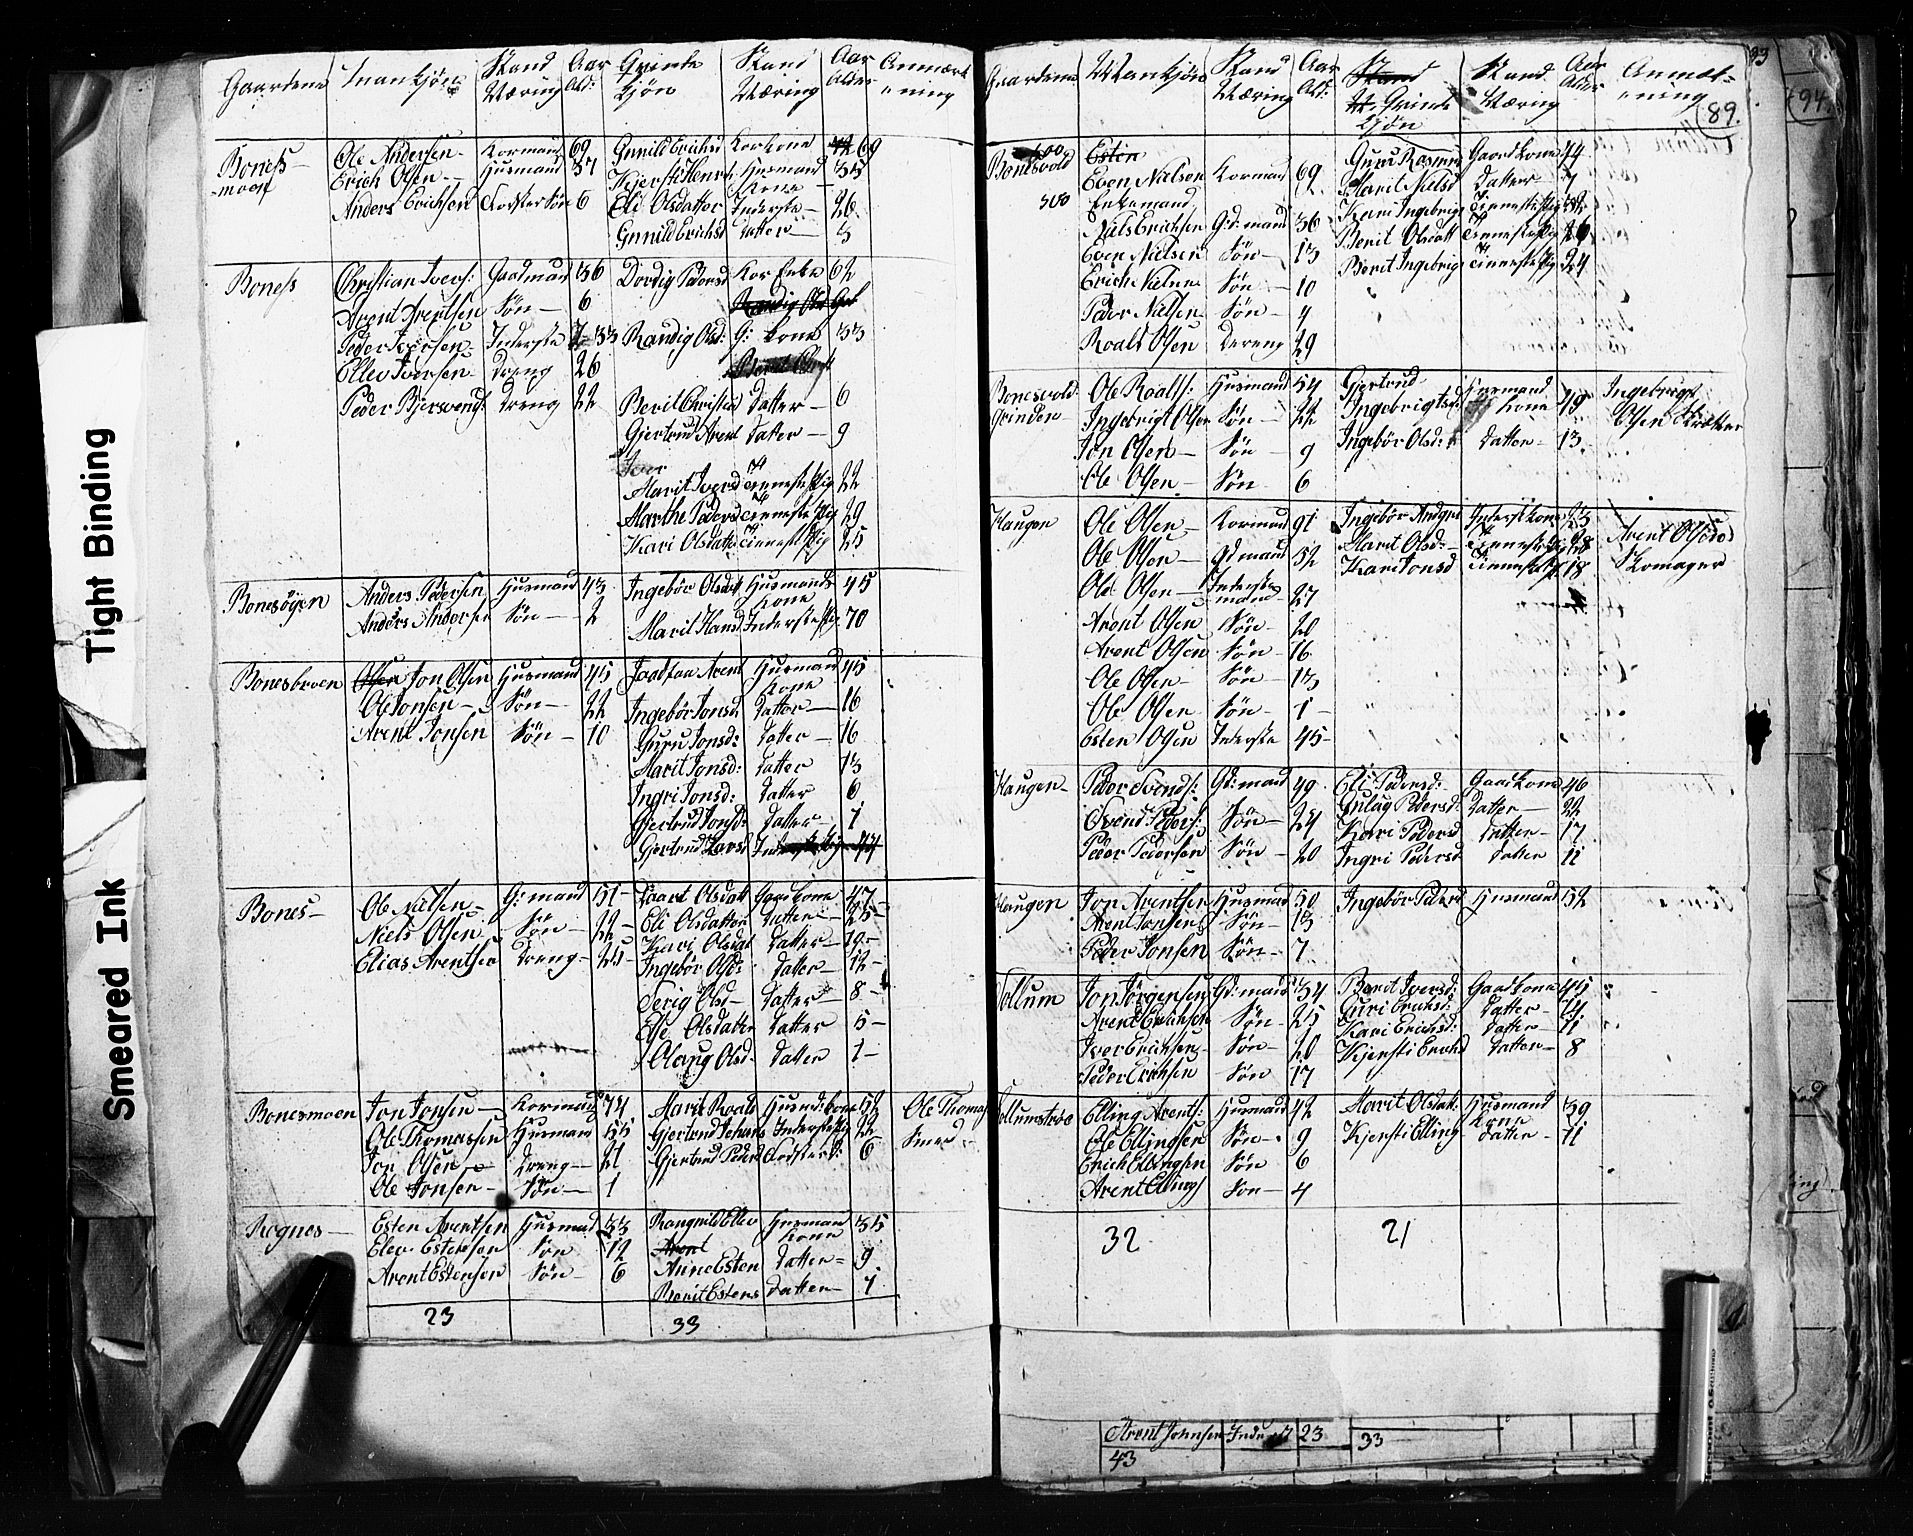 Tight Binding
Smeared Ink
Gaardene Mankjøn Stand Næring Aar Ald: Qvinde kjøn Stand Næring Aar Alder Anmærk ning
Boness moen
Ole Andersen Kormand 69 Gunild Erichsd Korkone 69
Erich Olsen Husmand 37 Kjersti Henr Husmand Kone 35
Anders Erichsen Fostersøn 6 Eli Olsdatter Inderste 26
Gunild Erichsd datter 3
Boness
Christian Ivers: Gaadmand 36 Dordig Pedersd Kor Enke 62
Arent Arentsen Søn 6
Peder Iversen Inderste 33 Randig Olsd: G: kone 33
Ellev Iversen dreng 26
Peder Bjersvends: dreng 22 Berit Christia datter 6
Gjertrud Arent datter 9
Iver
Marit Iversd tienestepig 22
Marthe Pedersd tienestepig 29
Kari Olsdatt tienestepig 25
Bonesøyen
Anders Pedersen Husmand 43 Ingebør Olsdatt Husmands Kone 45
Anders Andersen Søn 2 Marit Hansd Inderstepig 70
Bonesbroen
Jon Olsen Husmand 45 Arent Husmand Kone 45
Ole Jonsen Søn 22 Ingebør Jonsd datter 16
Arent Jonsen Søn 10 Guru Jonsd: datter 16
Marit Jonsd: datter 13
Ingri Jonsd: datter 6
Gjertrud Jonsd: datter 1
Gjertrud Larsd
Bones
Ole Nilsen G: mand 51 Olsdatt Gaardkone 47
Niels Olsen Søn 22 Eli Olsdatter datter 25
Elias Arentsen dreng 25 Kari Olsdat datter 19
Ingebør Olsd: datter 12
Serig Olsd datter 8
Else Olsdatter datter 5
Olaug Olsd. datter 1
Bonesmoen
Jon Jonsen Kormand 74 Marit Roals Husmd: kone 52 Ole Thomas
Ole Thomassen Husmand 55 Gjertrud Johans Inderstepig 22 Smed
Jon Olsen dreng 21 Gjertrud Peders Fosterd: 6
Ole Jonsen Søn 1
Rognes
Esten Arentsen Husmand 33 Rangnild Ellev Husmand Kone 35
Elev Estensen Søn 12 Arent
Arent Estensen Søn 6 Anne Esten datter 9
Berit Estens datter 1
23 33
Gaardene Mankjøn Stand Næring Aar Ald: Stand Qvinde kjøn Stand Næring Aar Alder Anmæk ning
93
94
89
Bonesvold
300
Esten
Even Nilsen Kormand 69 Guru Rasmus Gaardkone 44
Enkemand Marit Nielsd datter 7
Nils Erichsen Gd: mand 36 Kari Ingebrigs tienestepig
Even Nielsen Søn 13 Berit Olsdatt tienestepig
Erich Nielsen Søn 10 Berit Ingebrig tienestepig 24
Peder Nilsen Søn 4
Roald Olsen dreng 29
Bonesvold Grinden
Ole Roals: Husmand 54 Gjertrud Ingebrigtsd Husmand Kone 49 Ingebrigt
Ingebrigt Olsen Søn 22 Olsen Skrædder
Jon Olsen Søn 9 Ingebør Olsd: datter 13
Ole Olsen Søn 6
Haugen
Ole Olsen Kormand 91 Ingebør Anders Inderstkone 23 Arent Olsen
Ole Olsen Gd mand 52 Marit Olsd: tienestepig 28 Skomager
Ole Olsen Inderste mand 27 Kari Jonsd tienestepig 18
Arent Olsen Søn 20
Arent Olsen Søn 16
Ole Olsen Søn 13
Ole Olsen Søn 1
Esten Olsen Inderste 45
Haugen
Peder Svends: Gd: mand 49 Eli Pedersd: Gaadkone 46
Svend Peders: Søn 24 Gulag Pedersd: datter 22
Peder Pedersen Søn 20 Kari Pedersd datter 17
Ingri Pedersd datter 11
Haugen
Jon Arentsen Husmand 50 Ingebør Pedersd Husmand 52
Arent Jonsen Søn 13
Peder Jonsen Søn 7
Follum
Jon Jørgensen Gd: mand 34 Berit Iversd: Gaadkone 45
Arent Erichsen Søn 25 Guri Erichsd: datter 14
Iver Erichsen Søn 20 Kari Erichsd: datter 11
Peder Erichsen Søn 17 Kjersti Erichsd datter 8
Follumstrøe
Elling Arents: Husmand 42 Marit Olsdat: Husmand Kone 39
Ole Ellingsen Søn 9 Kjersti Elling datter 11
Erich Ellingsen Søn 6
Arent Ellings Søn 4
32 21
Arent Johnsen 23 33
43